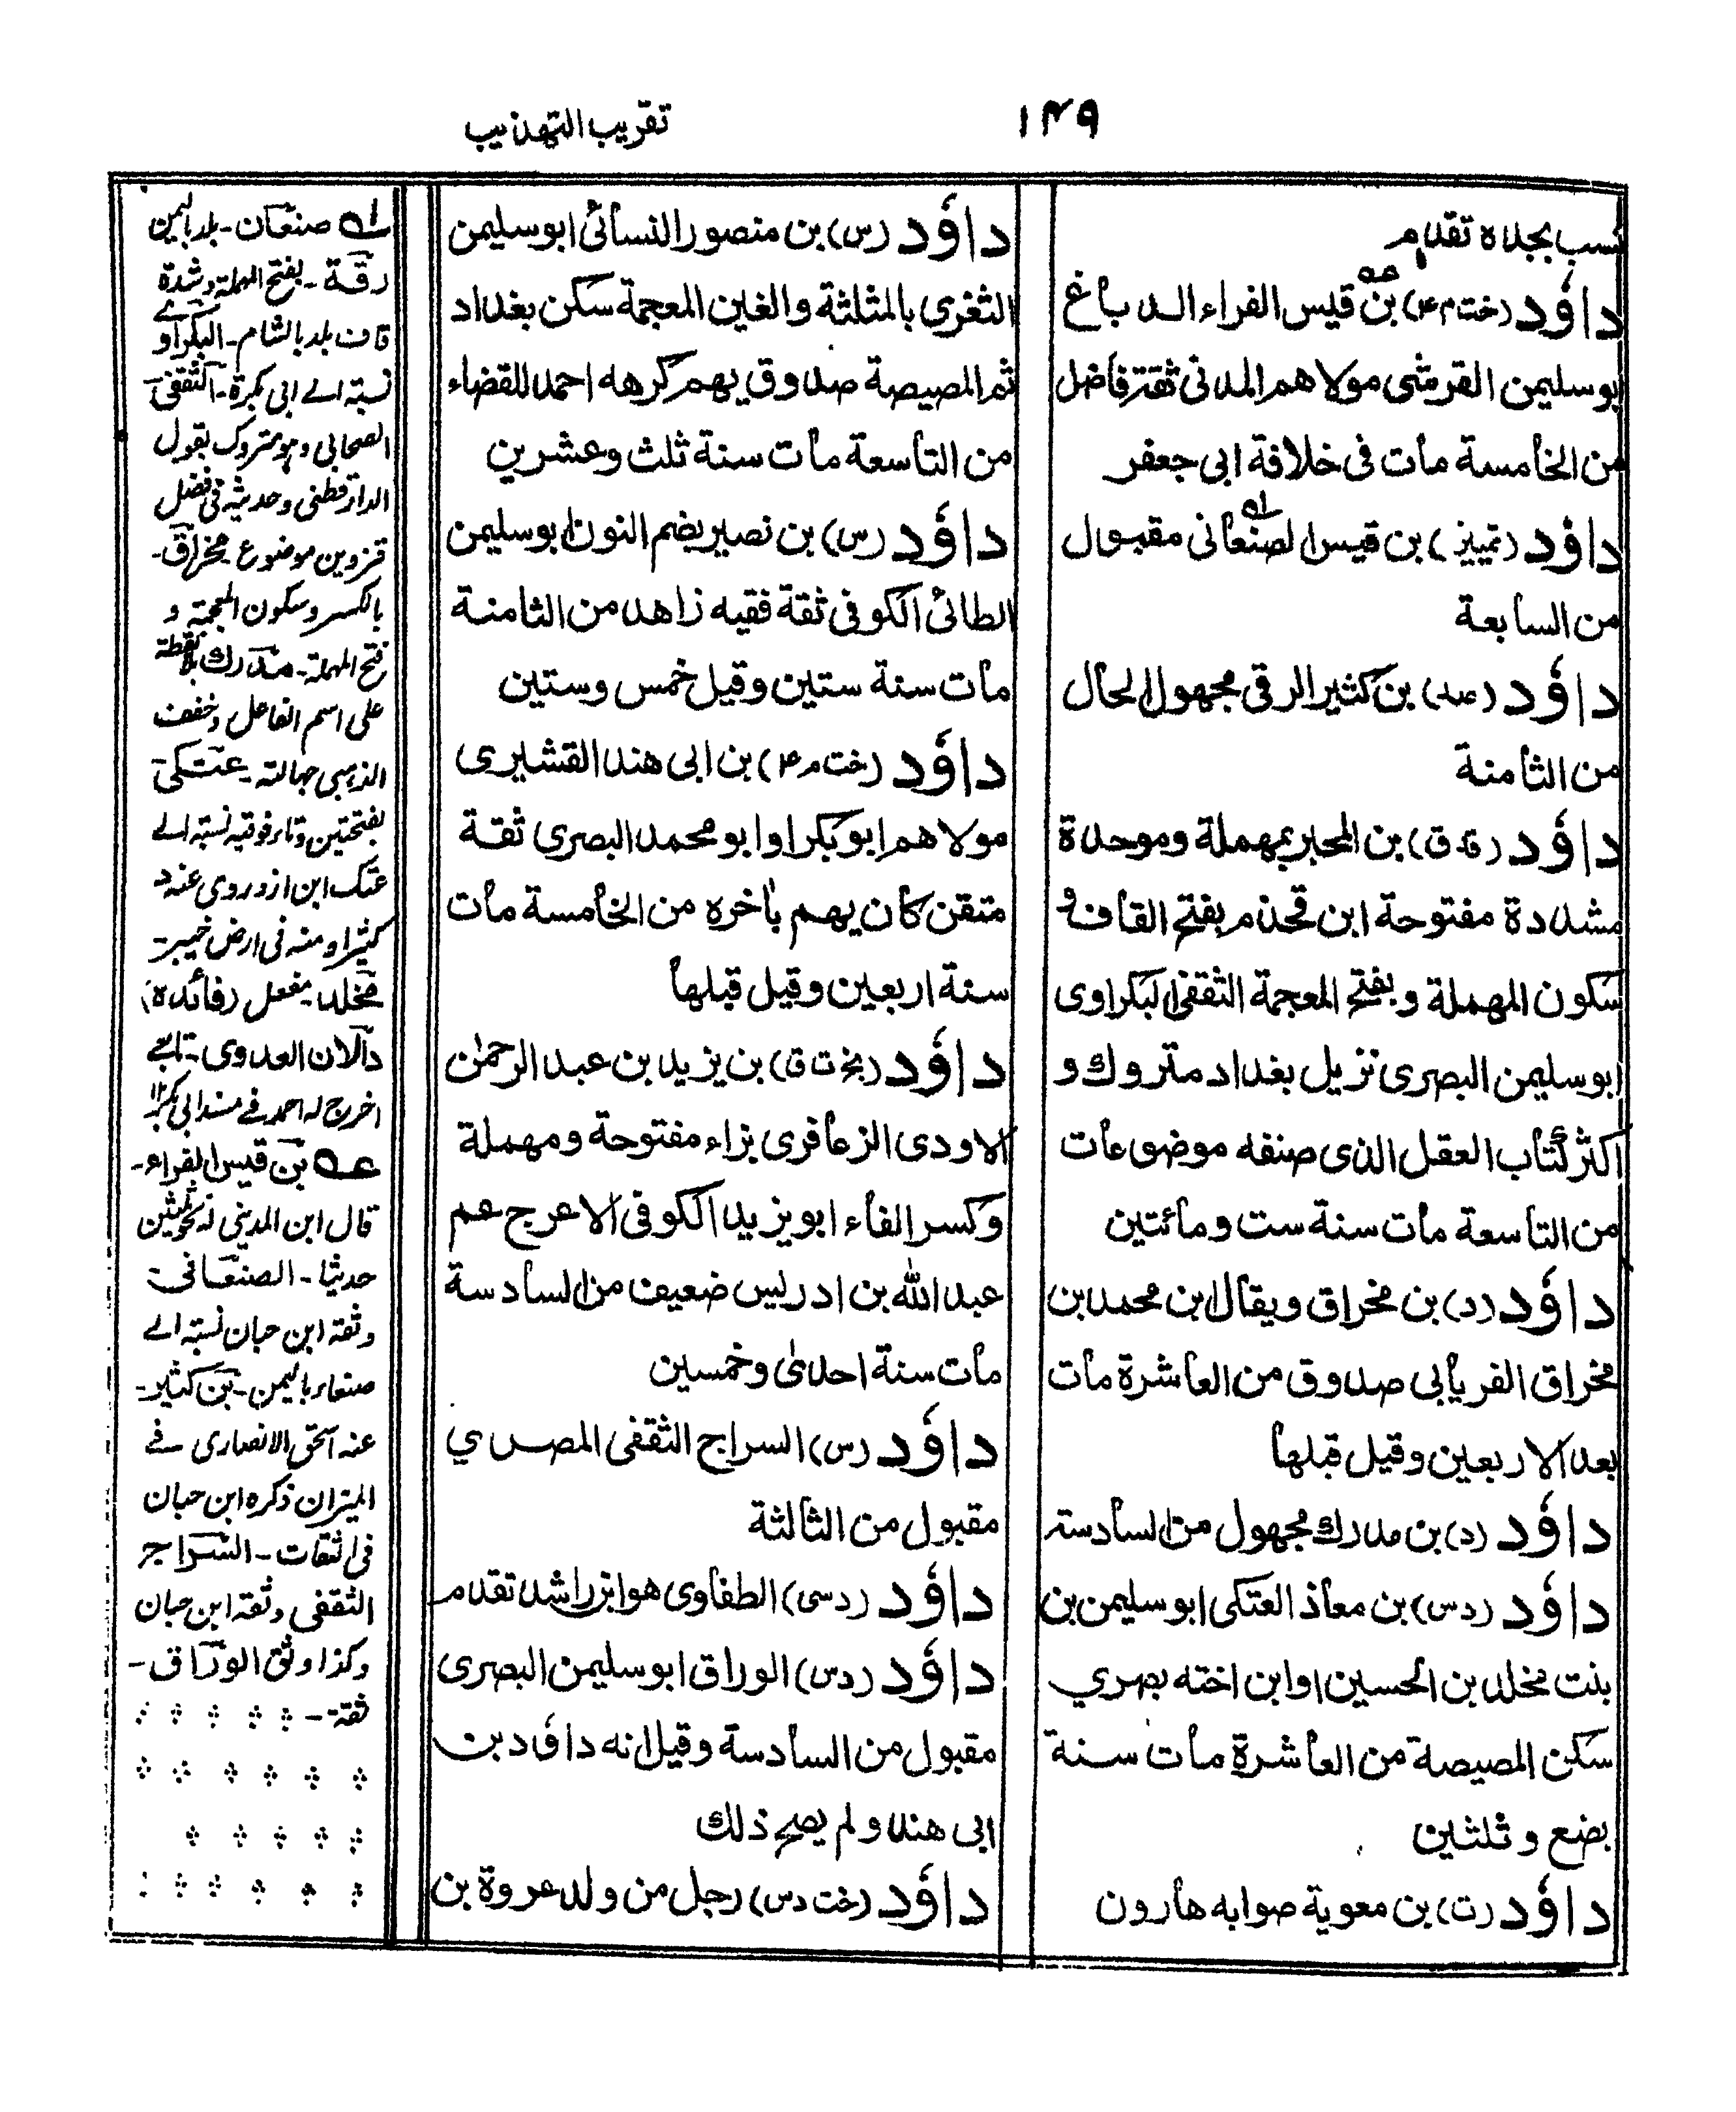 ١٤٩
تقريب التهذيب
نسب بجده تقدم
داؤد (خت م ٤) بن قيس الفراء الدباغ
ابو سليمن القرشي مولاهم المدني ثقة فاضل
من الخامسة مات في خلافة ابي جعفر
داؤد (تمييز) بن قيس الصنعاني مقبول
من السابعة
داؤد (عه) بن كثير الرقي مجهول الحال
من الثامنة
داؤد (ق) بن المحبر بمهملة وموحدة
مشددة مفتوحة ابن قحذم بفتح القاف و
سكون المهملة وبفتح المعجمة الثقفي البكراوي
ابو سليمن البصري نزيل بغداد متروك و
اكثر كتاب العقل الذي صنفه موضوعات
من التاسعة مات سنة ست ومائتين
داؤد (د) بن مخراق ويقال ابن محمد بن
مخراق الفريابي صدوق من العاشرة مات
بعد الاربعين وقيل قبلها
داؤد (د) بن مدرك مجهول من السادسة
داؤد (د س) بن معاذ العتكي ابو سليمن بن
بنت مخلد بن الحسين او ابن اخته بصري
سكن المصيصة من العاشرة مات سنة
بضع وثلثين
داؤد (ت) بن معوية صوابه هارون
داؤد (س) بن منصور النسائي ابو سليمن
الثغري بالمثلثة والغين المعجمة سكن بغداد
ثم المصيصة صدوق يهم كرهه احمد للقضاء
من التاسعة مات سنة ثلث وعشرين
داؤد (س) بن نصير بضم النون ابو سليمن
الطائي الكوفي ثقة فقيه زاهد من الثامنة
مات سنة ستين وقيل خمس وستين
داؤد (خت م ٤) بن ابي هند القشيري
مولاهم ابو بكر او ابو محمد البصري ثقة
متقن كان يهم باخره من الخامسة مات
سنة اربعين وقيل قبلها
داؤد (بخ ت ق) بن يزيد بن عبد الرحمن
الاودي الزعافري بزاء مفتوحة ومهملة
وكسر الفاء ابو يزيد الكوفي الاعرج عم
عبد الله بن ادريس ضعيف من السادسة
مات سنة احدى وخمسين
داؤد (س) السراج الثقفي المصري
مقبول من الثالثة
داؤد (د سي) الطفاوي هو ابن راشد تقدم
داؤد (د س) الوراق ابو سليمن البصري
مقبول من السادسة وقيل انه داؤد بن
ابي هند ولم يصح ذلك
داؤد (خت د س) رجل من ولد عروة بن
له صنعان - بلد باليمن
رقة - بفتح المهملة وشدة
قاف بلد بالشام - البكراوي
نسبة الى ابي بكرة - الثقفي
الصحابي وهو متروك بقول
الدارقطني وحديثه في فضل
قزوين موضوع مخراق -
بالكسر وسكون المعجمة و
فتح المهملة - مدرك بلا نقطة
على اسم الفاعل وخفف
الذهبي جهالته - عتكي
بفتحتين وتاء فوقية نسبة الى
عتك ابن ازد روى عنه د
كثيرا ومنه في ارض خيبر -
مخلد - مفعل (فائدة)
دالان العدوي - تابعي
اخرج له احمد في مسند ابي بكر
عه بن قيس الفراء -
قال ابن المديني له نحو ثلثين
حديثا - الصنعاني -
وثقه ابن حبان نسبة الى
صنعاء باليمن - بن كثير -
عنه اسحق الانصاري في
الميزان ذكره ابن حبان
في الثقات - السراج
الثقفي وثقه ابن حبان
وكذا وثق الوراق -
ثقة -